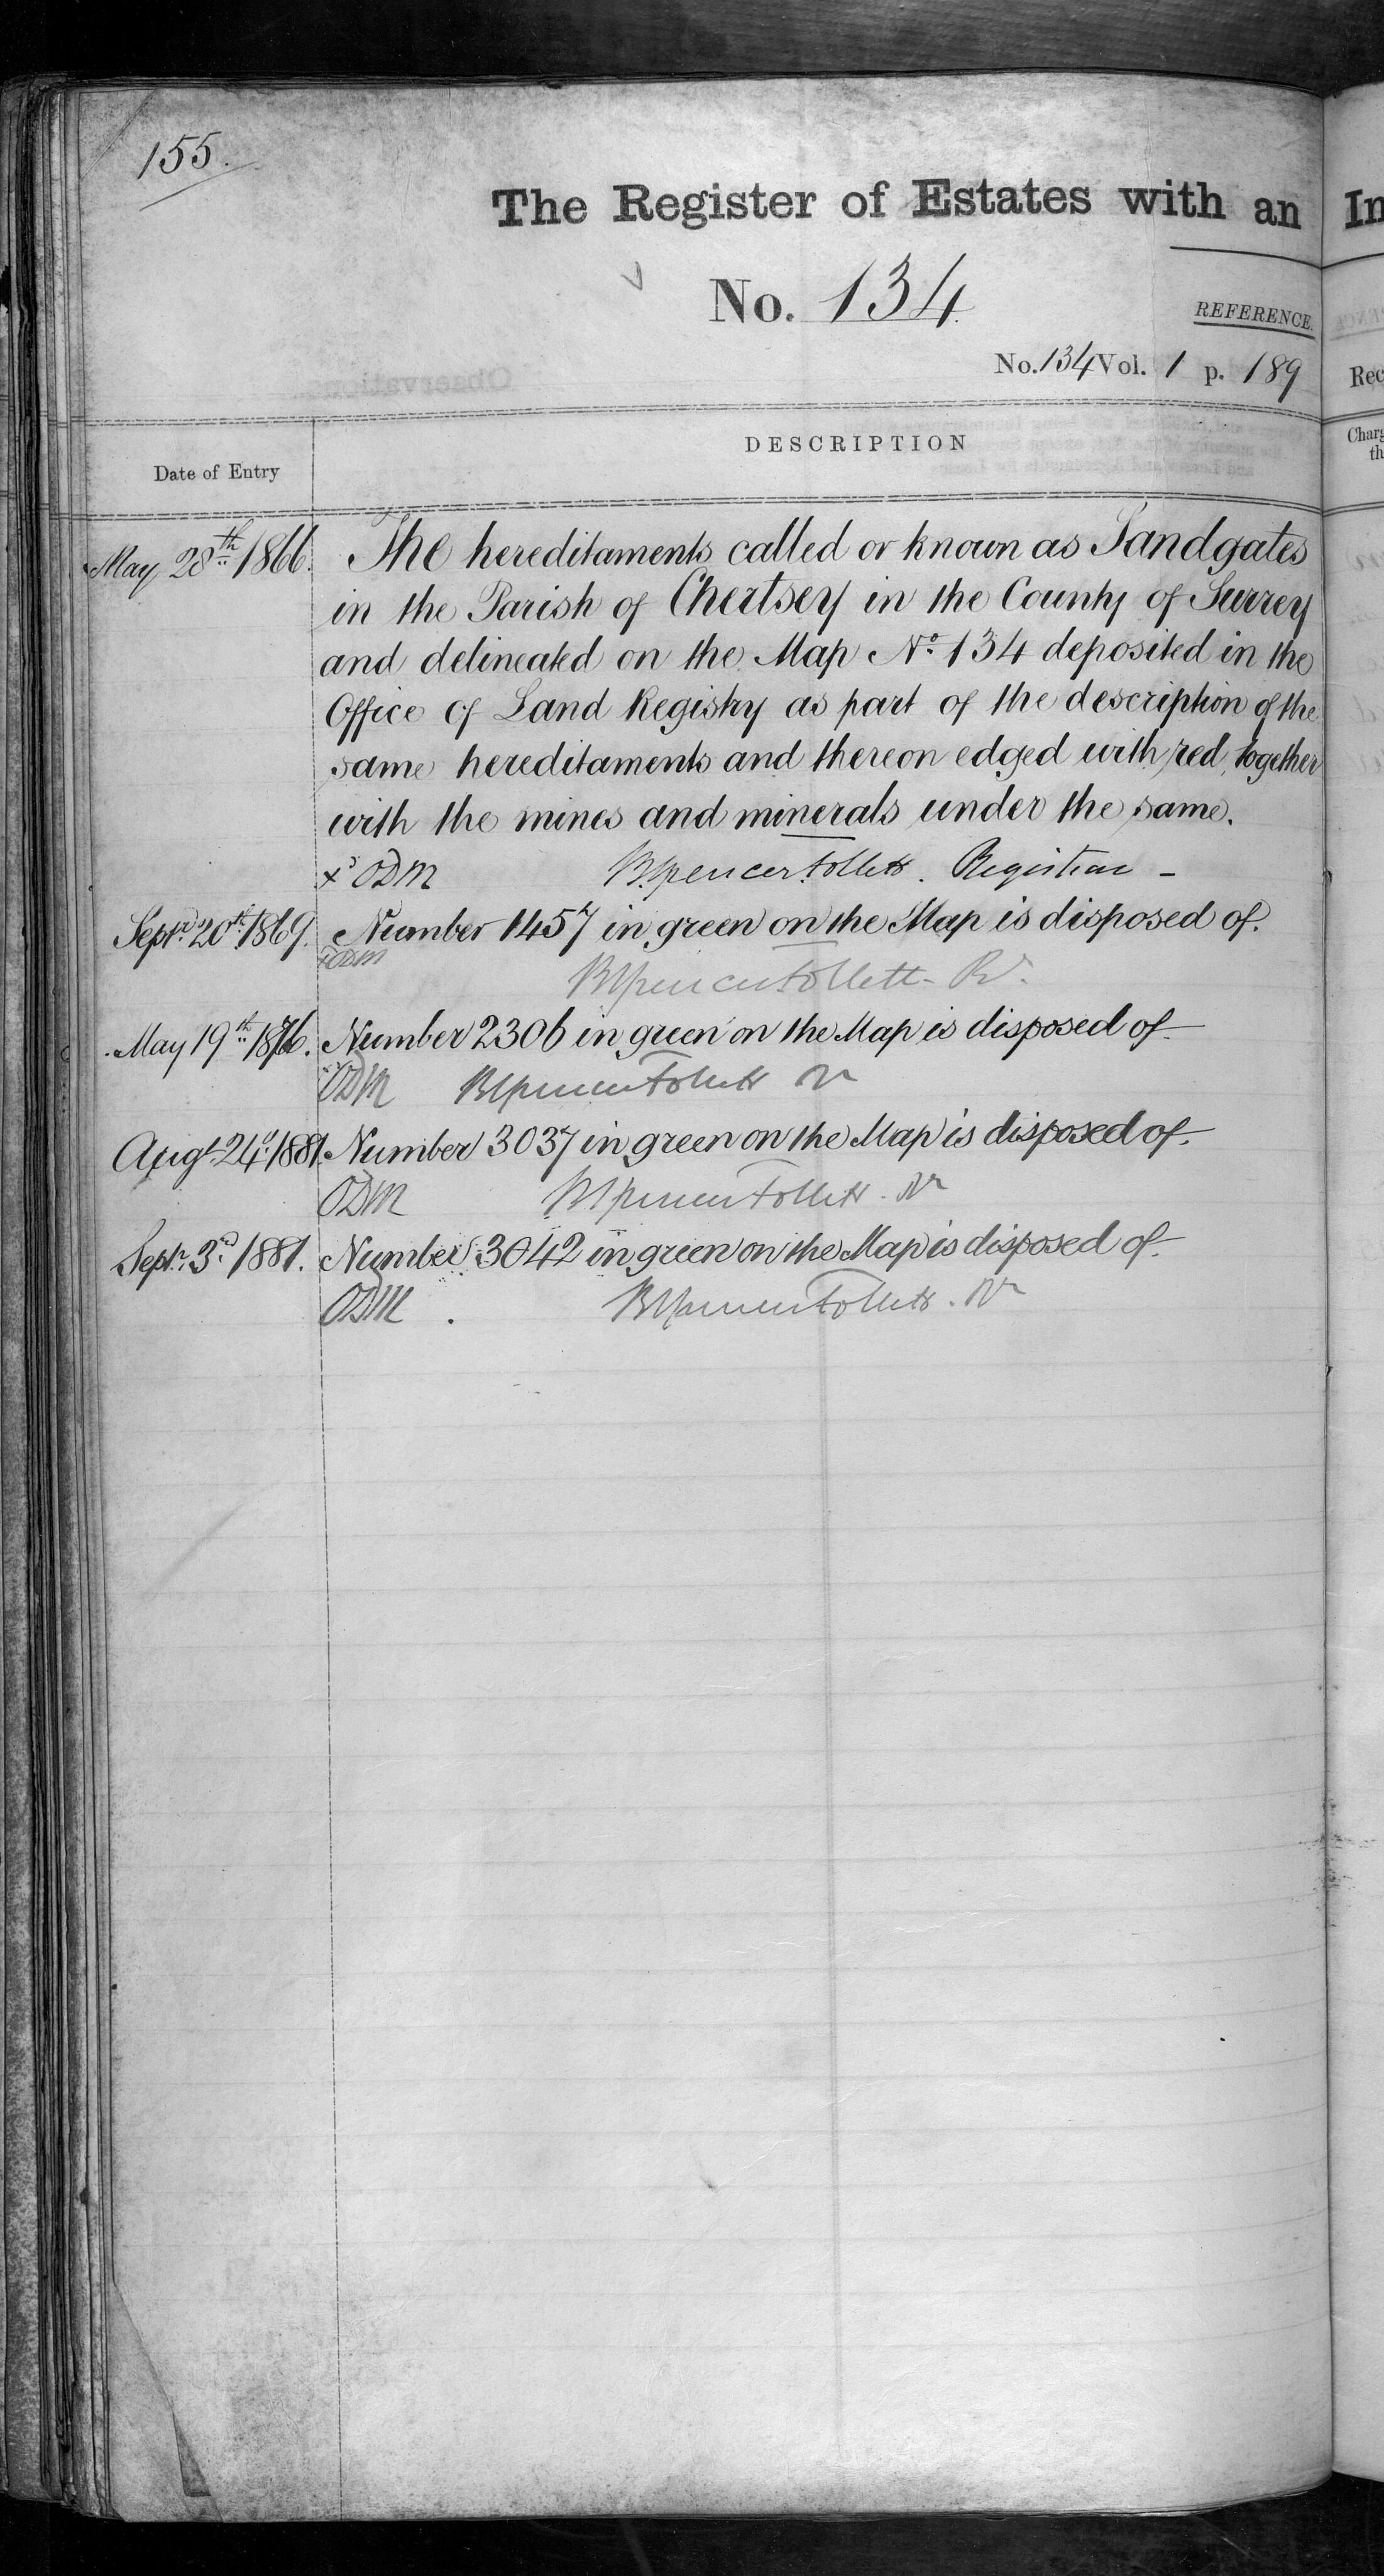 155.
The Register of Estates with an In
No. 134
REFERENCE.
No. 134 Vol. 1 p. 189
Rec
Date of Entry
DESCRIPTION
Charg
th
May 28th 1866. The hereditaments called or known as Sandgates
in the Parish of Chertsey in the County of Surrey
and delineated on the Map No. 134 deposited in the
Office of Land Registry as part of the description of the
same hereditaments and thereon edged with red, together
with the mines and minerals under the same.
ODM BSpencer Follett. Registrar -
Septr. 20th 1869. Number 1457 in green on the Map is disposed of.
ODM
BSpencer Follett - Rr.
May 19th 1876. Number 2306 in green on the Map is disposed of
ODM BSpencer Follett Rr
Augt. 24th 1881. Number 3037 in green on the Map is disposed of.
ODM BSpencer Follett. Rr
Septr. 3rd 1881. Number 3042 in green on the Map is disposed of.
ODM. BSpencer Follett. Rr